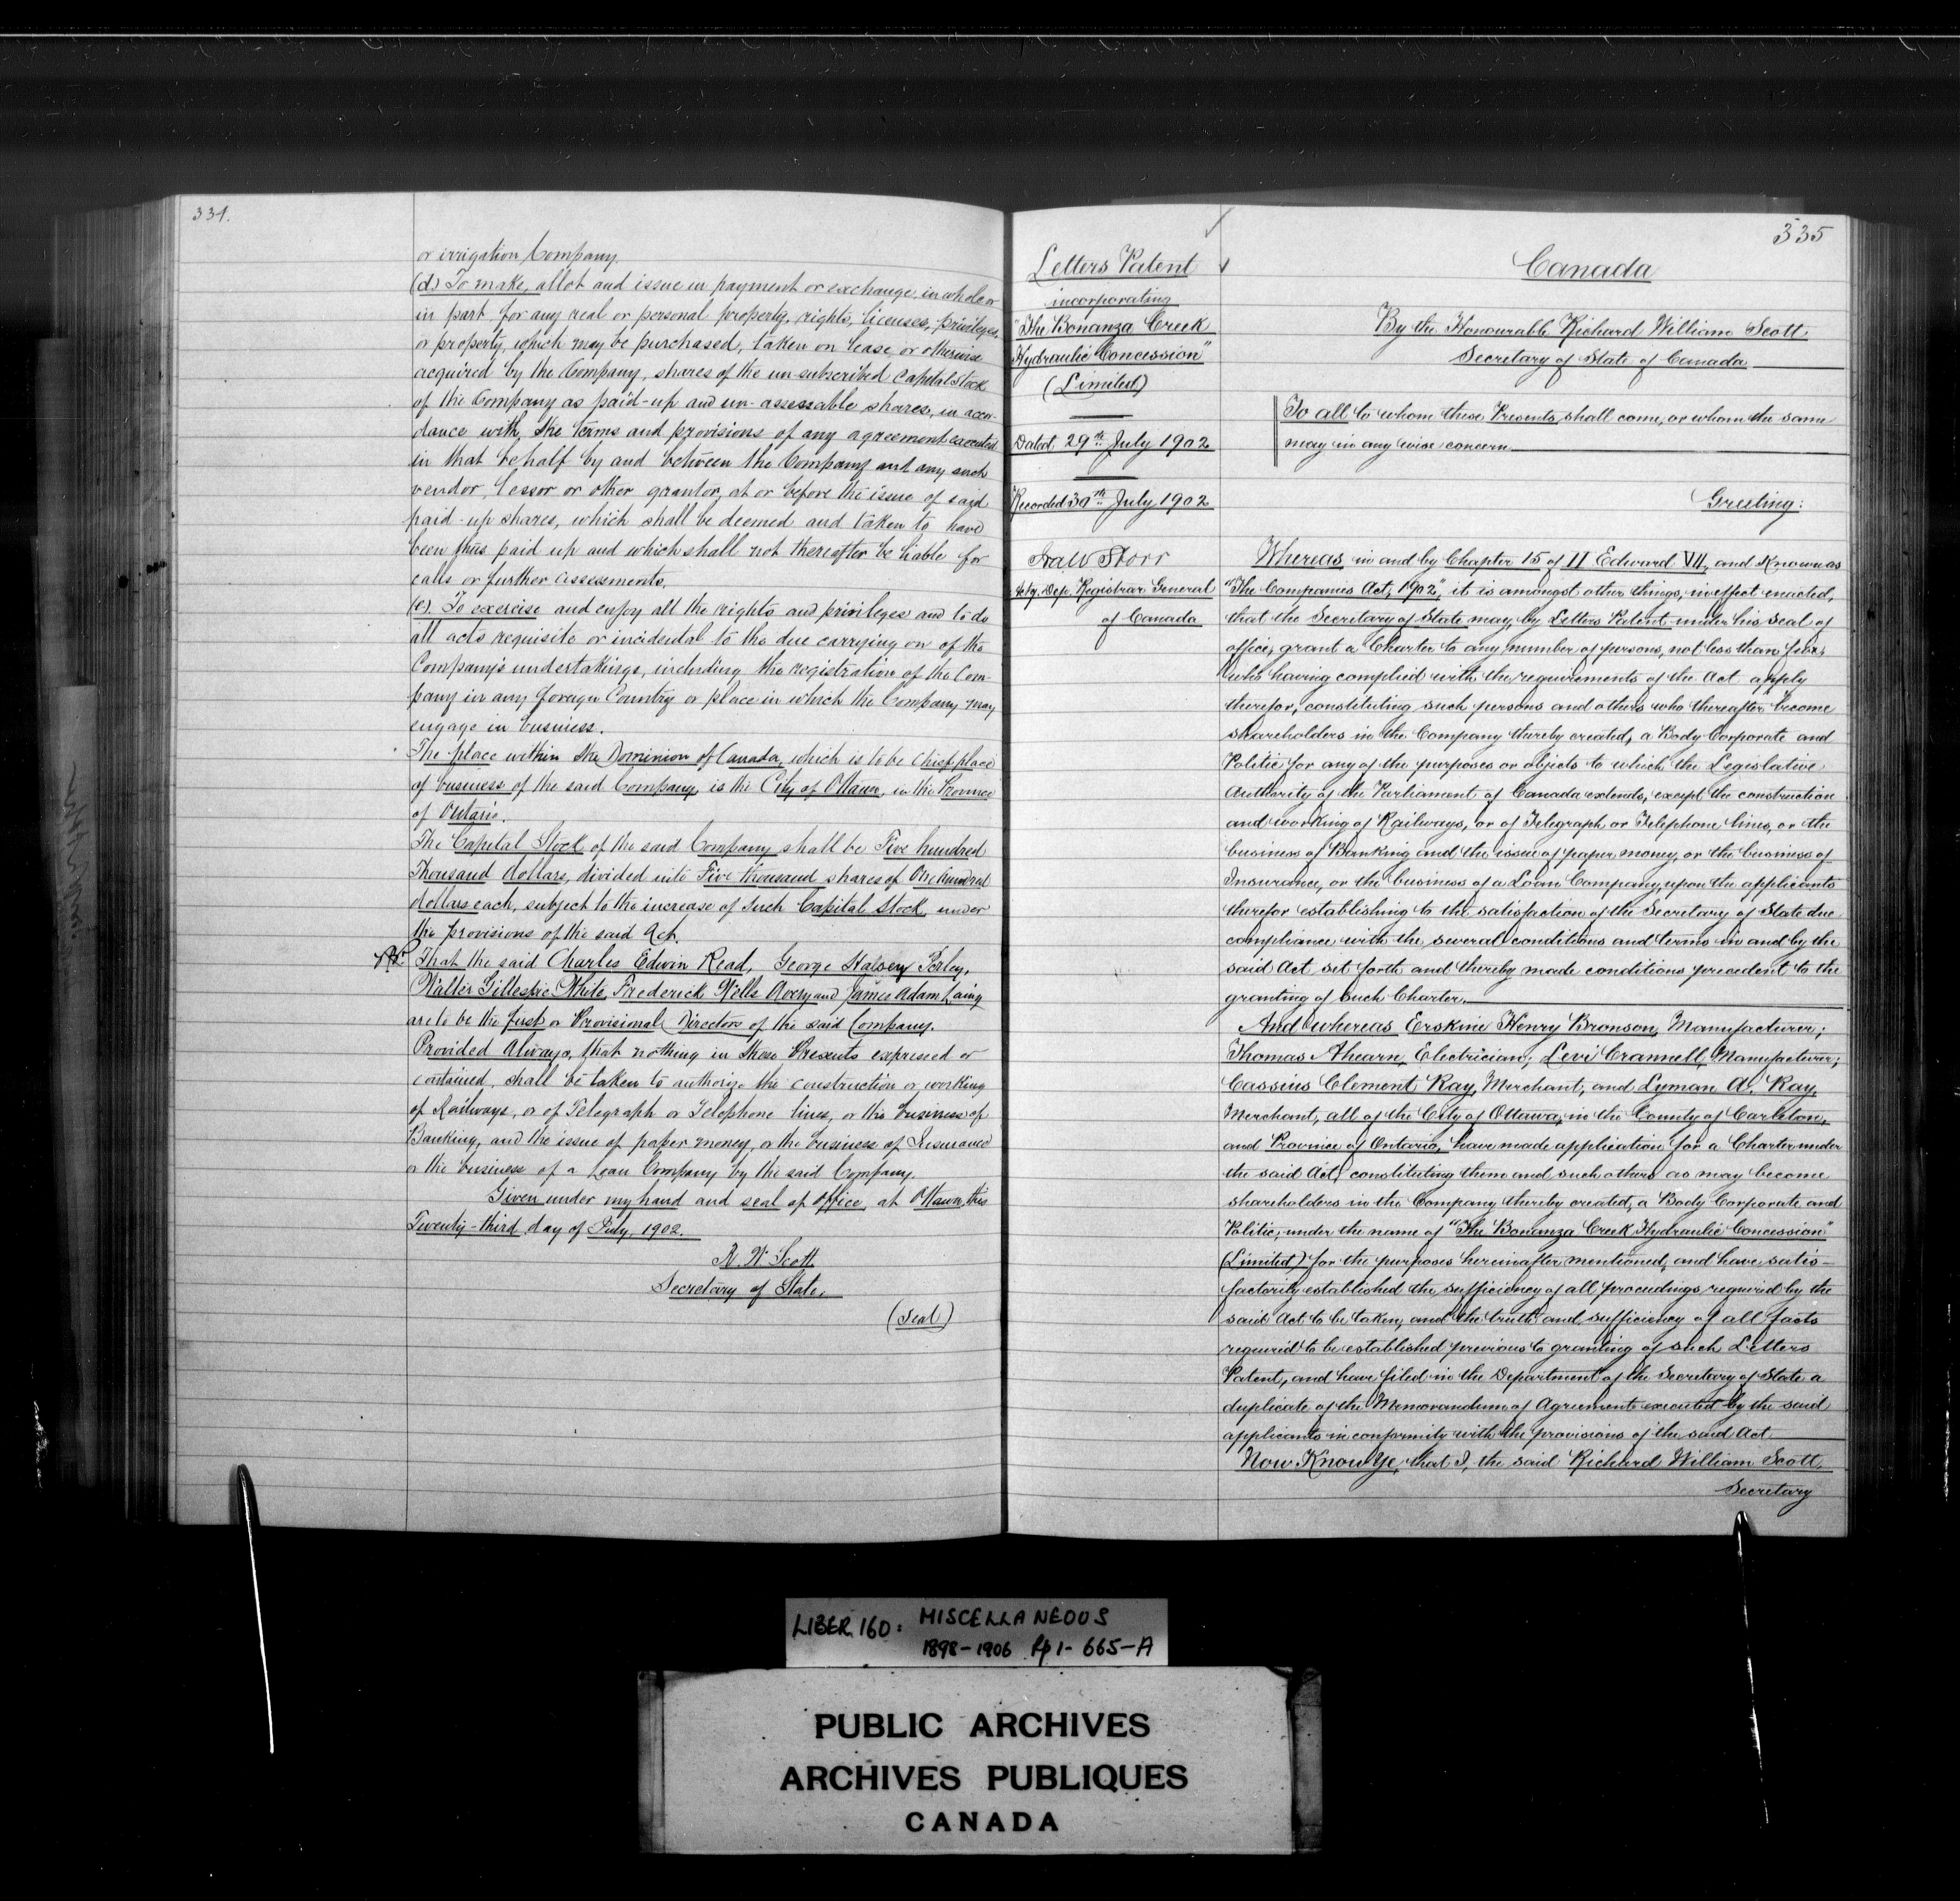 334.
or irrigation Company.
(d) To make, allot and issue in payment or exchange, in whole or
in part, for any real or personal property, rights, licenses, privileges,
or property, which may be purchased, taken on lease, or otherwise
acquired by the Company, shares of the un-subscribed Capital Stock
of the Company as paid-up and un-assessable shares, in accor-
dance with, the terms and provisions of any agreement executed
in that behalf by and between the Company and any such
vendor, lessor or other grantor, at or before the issue of said
paid-up shares, which shall be deemed and taken to have
been thus paid up and which shall not thereafter be liable for
calls or further assessments.
(e). To exercise and enjoy all the rights and privileges and to do
all acts requisite or incidental to the due carrying on of the
Company's undertakings, including the registration of the Com-
pany in any foreign Country or place in which the Company may
engage in business.
The place within the Dominion of Canada, which is to be Chief place
of business of the said Company, is the City of Ottawa, in the Province
of Ontario.
The Capital Stock of the said Company shall be Five hundred
Thousand dollars, divided into Five thousand shares of One hundred
dollars each, subject to the increase of such Capital Stock, under
the provisions of the said Act.
That the said Charles Edwin Read, George Halsey Perley,
Walter Gillespie White, Frederick Wells Avery and James Adam Laing
are to be the first or Provisional Directors of the said Company.
Provided Always, that nothing in these Presents expressed or
contained, shall be taken to authorize the construction or working
of Railways, or of Telegraph or Telephone lines, or the business of
Banking, and the issue of paper money, or the business of Insurance
or the business of a Loan Company by the said Company.
Given under my hand and seal of office, at Ottawa, this
Twenty-third day of July, 1902.
R. W. Scott
Secretary of State.
(Seal)
335
Letters Patent
incorporating
"The Bonanza Creek
Hydraulic Concession"
(Limited)
Dated 29th July 1902
Recorded 30th July 1902
Storr
Actg. Dep. Registrar General
of Canada
Canada
By the Honourable Richard William Scott
Secretary of State of Canada
To all to whom these Presents, shall come, or whom the same
may in any wise concern
Greeting:
Whereas in and by Chapter 15 of II Edward VII, and Known as
"The Companies Act, 1902", it is amongst other things, in effect enacted,
that the Secretary of State may, by Letters Patent under his seal of
office, grant a Charter to any number of persons, not less than five,
who having complied with the requirements of the Act apply
therefor, constituting such persons and others who thereafter become
shareholders in the Company thereby created, a Body Corporate and
Politic for any of the purposes or objects to which the Legislative
Authority of the Parliament of Canada extends, except the construction
and working of Railways, or of Telegraph or Telephone lines, or the
business of Banking and the issue of paper money, or the business of
Insurance, or the business of a Loan Company, upon the applicants
therefor establishing to the satisfaction of the Secretary of State due
compliance with the several conditions and terms in and by the
said Act set forth and thereby made conditions precedent to the
granting of such Charter.
And whereas Erskine Henry Bronson, Manufacturer;
Thomas Ahearn, Electrician; Levi Crannell, Manufacturer;
Cassius Clement Ray, Merchant; and Lyman A. Ray,
Merchant, all of the City of Ottawa, in the County of Carleton,
and Province of Ontario, have made application for a Charter under
the said Act, constituting them and such others as may become
shareholders in the Company thereby created, a Body Corporate and
Politic, under the name of "The Bonanza Creek Hydraulic Concession"
(Limited) for the purposes hereinafter mentioned, and have satis-
factorily established the sufficiency of all proceedings required by the
said Act to be taken, and the truth and sufficiency of all facts
required to be established previous to granting of such Letters
Patent, and have filed in the Department of the Secretary of State a
duplicate of the Memorandum of Agreement executed by the said
applicants in conformity with the provisions of the said Act
Now Know Ye, that I, the said Richard William Scott,
Secretary
LIBER 160: MISCELLANEOUS
1898-1906 Pp 1-665-A
PUBLIC ARCHIVES
ARCHIVES PUBLIQUES
CANADA